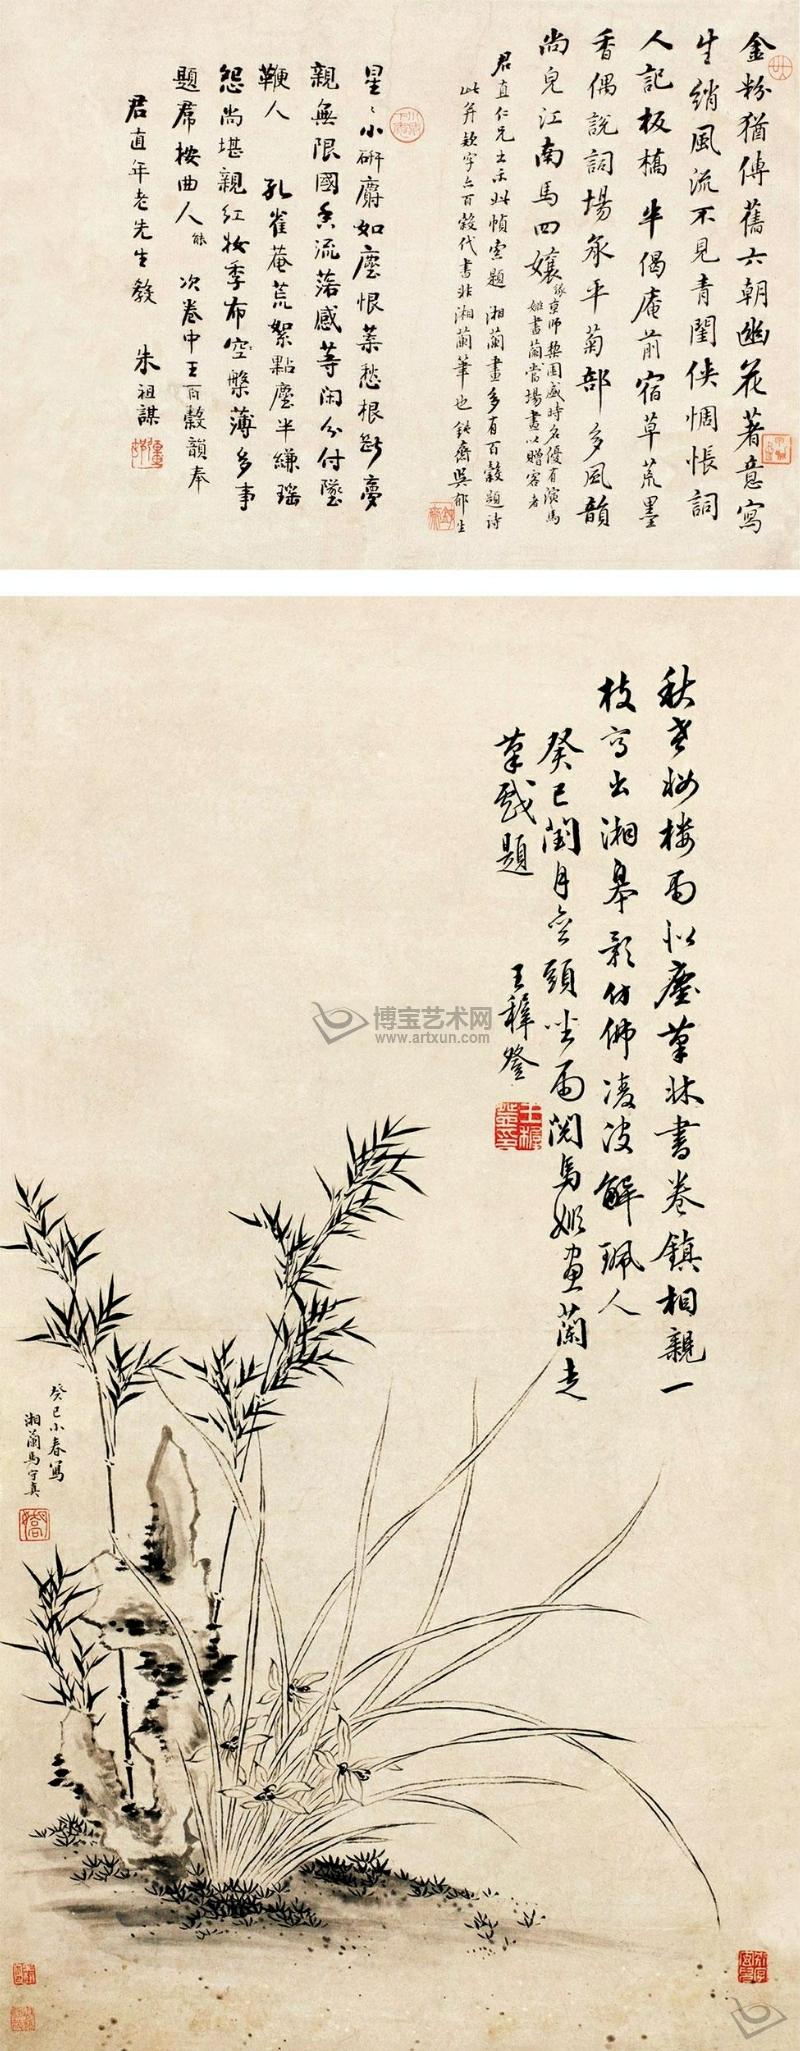 金粉猶傳舊六朝幽花著意寫
生綃風流不見青閨俠惆悵詞
人記板橋半偈庵前宿草荒墨
香偶說詞場永平菊部多風韻
尚兒江南馬四孃
京師梨園盛時名優有演馬
姬書蘭當場畫以贈客者
君直仁兄出示此幀索題 湘蘭畫多有百穀題詩
此并款字亦百穀代書非湘蘭筆也 鈍齋吳郁生
星〻小研麝如塵恨葉愁根斷夢
親無限國香流落感等闲分付墜
鞭人 孔雀菴荒絮點塵半縑瑶
怨尚堪親紅妝季布空槃薄多事
題帬按曲人 次卷中王百穀韻奉
君直年老先生教 朱祖謀
秋老妝樓雨似塵筆牀書卷鎮相親一
枝寫出湘皋影仿佛凌波解珮人
癸巳閏月 頭坐雨閱馬姬畫蘭走
筆戲題 王穉登
王穉登印
癸巳小春寫
湘蘭馬守真
博宝艺术网
www.artxun.com